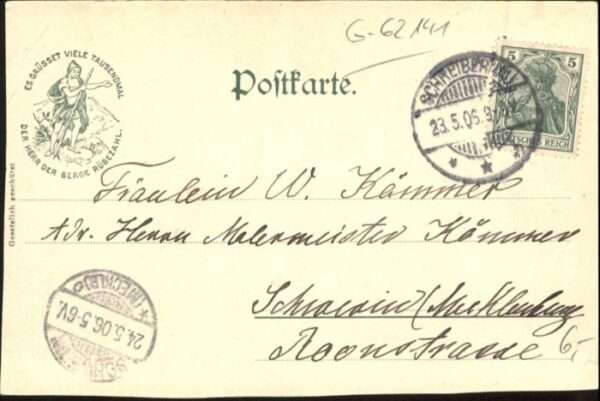 G-62141
ES GRÜSSET VIELE TAUSENDMAL
DER HERR DER BERGE RÜBEZAHL.
Postkarte.
SCHREIBERHAU
23.5.06.
5 5
DEUTSCHES REICH
Gesetzlich geschützt.
Fräulein W. Kömmer
Adr. Herrn Malermeister Kömmer
Schwerin (Mecklenburg
Roonstrasse
6,-
(MECKLB)
24.5.06.5-6V.